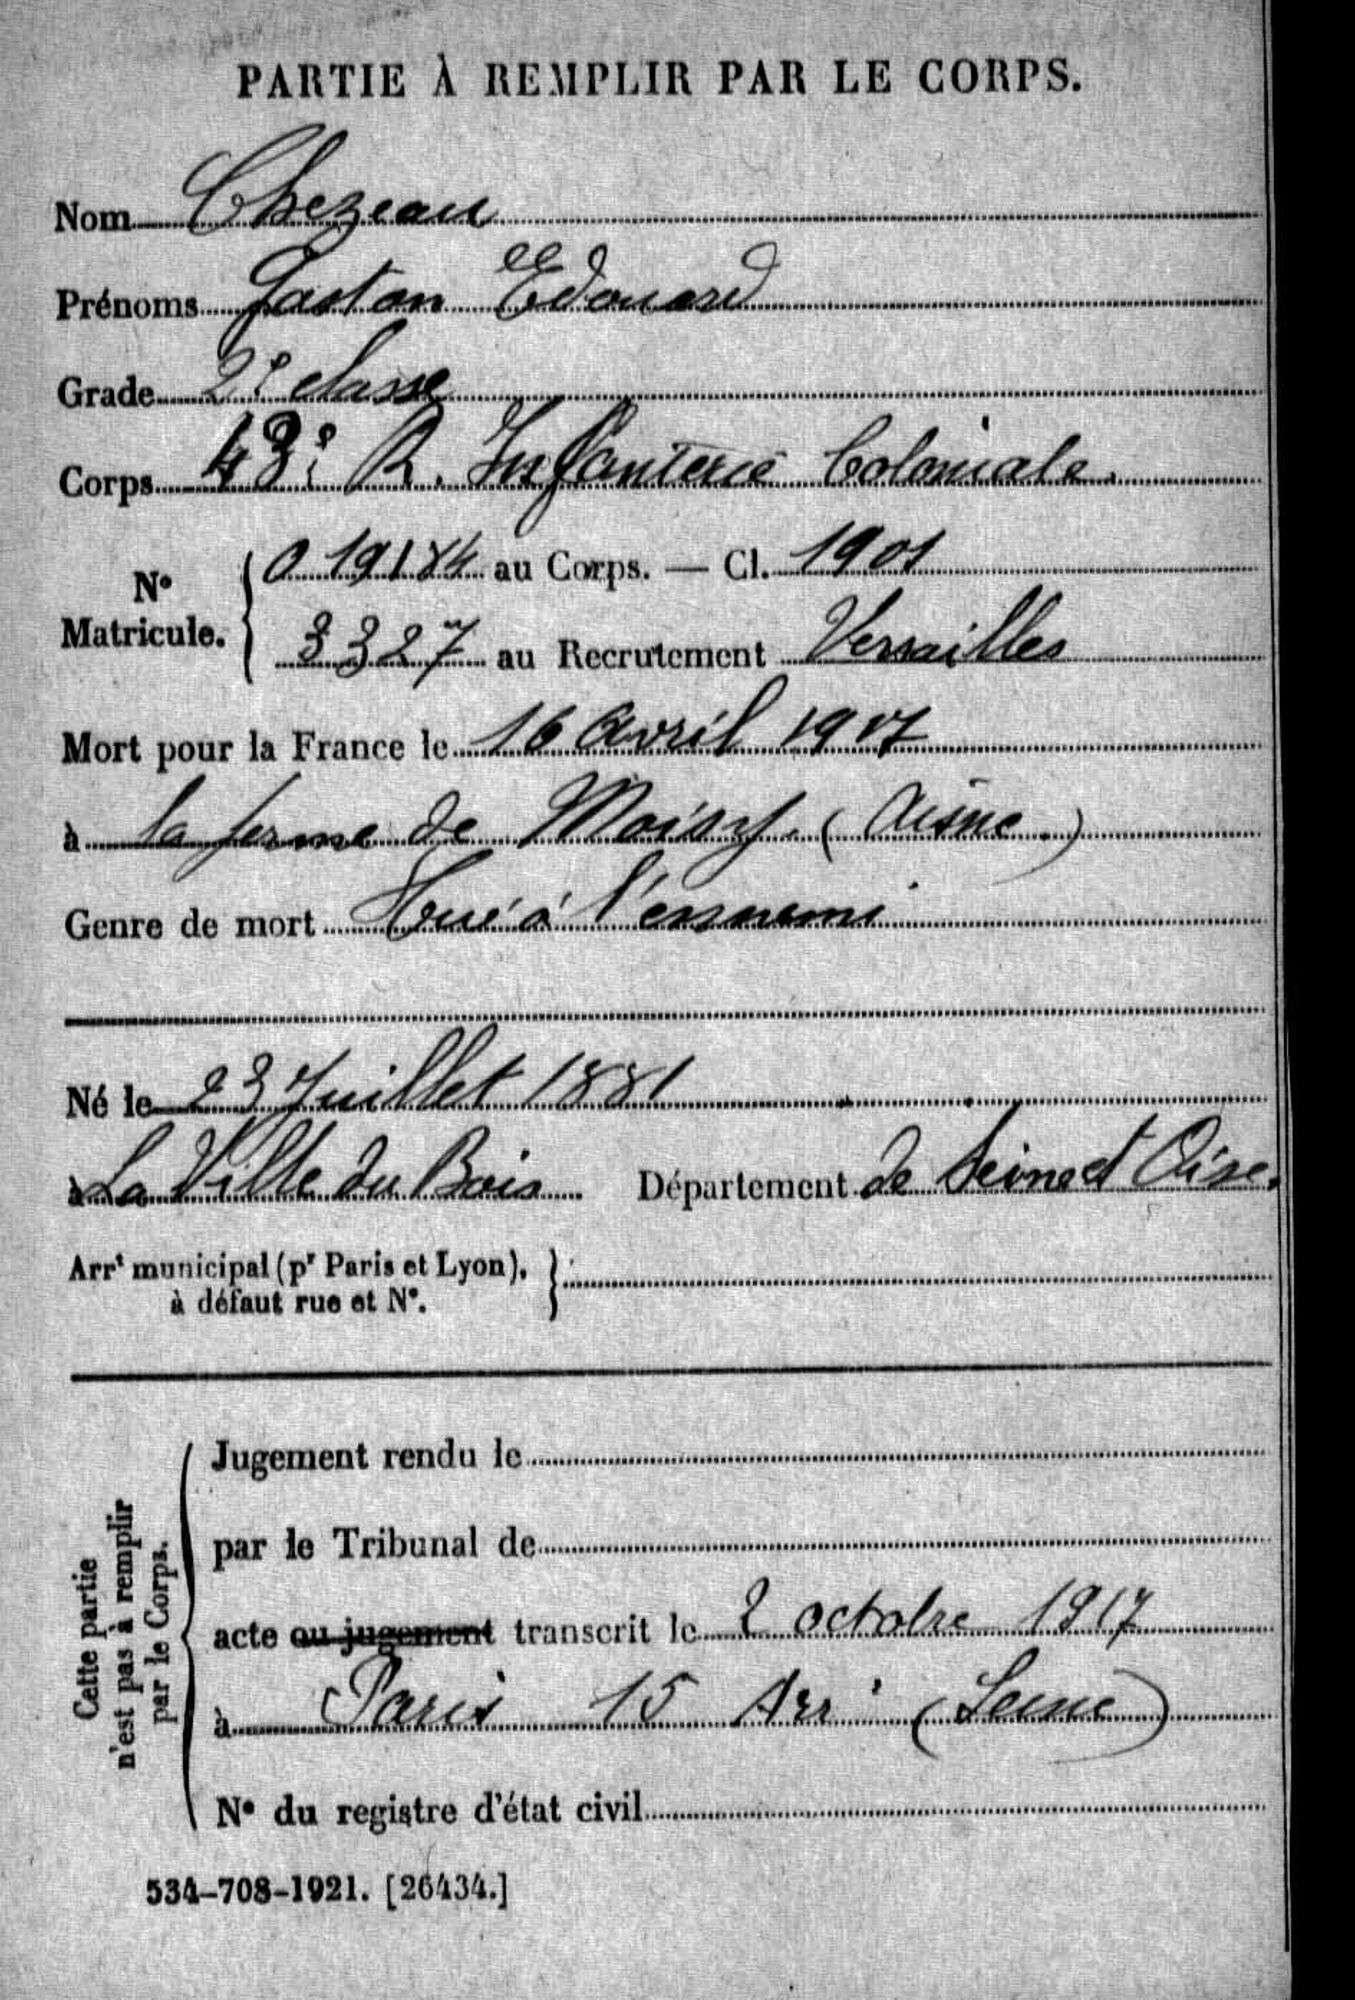 PARTIE À REMPLIR PAR LE CORPS.
Nom Chezeau
Prénoms Gaston Edouard
Grade 2e classe
Corps 43e R. Infanterie Coloniale.
N° Matricule. 019184 au Corps. — Cl. 1901
3327 au Recrutement Versailles
Mort pour la France le 16 Avril 1917
à la ferme de Moisy. (Aisne.)
Genre de mort Tué à l'ennemi
Né le 23 Juillet 1881
à La Ville du Bois Département de Seine et Oise.
Arrt municipal (pr Paris et Lyon),
à défaut rue et N°.
Cette partie
n'est pas à remplir
par le Corps.
Jugement rendu le
par le Tribunal de
acte ou jugement transcrit le 2 octobre 1917
à Paris 15 Arr (Seine)
N° du registre d'état civil
534-708-1921. [26434.]